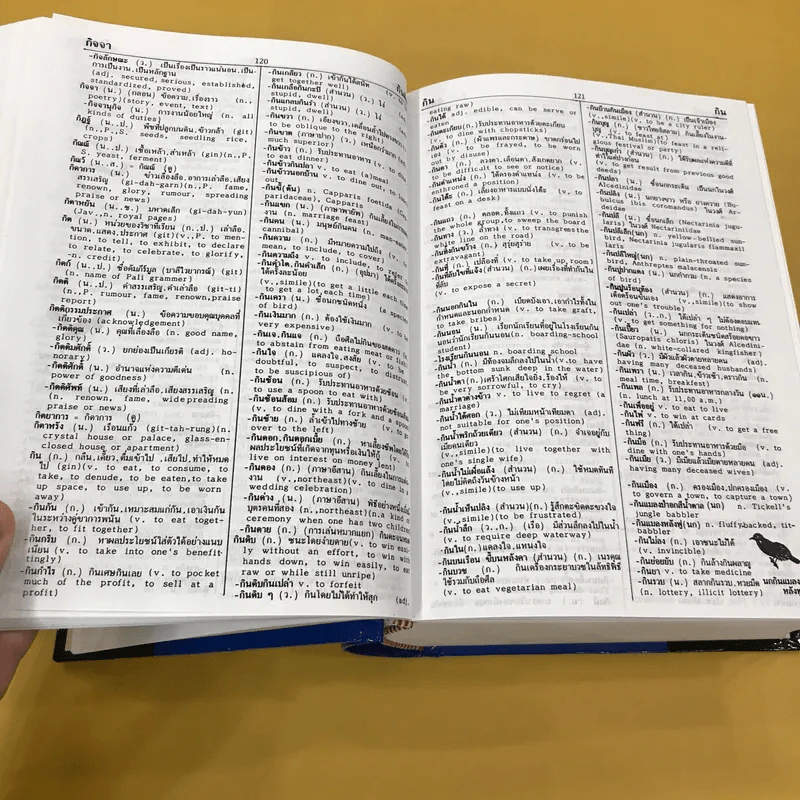 กิจจา
120
-กิจลักษณะ (ว.) เป็นเรื่องเป็นราวแน่นอน,เป็น
การเป็นงาน,เป็นหลักฐาน
(adj. secured, serious, established,
standardized, proved)
กิจจา (น.) (กลอน) ข้อความ,เรื่องราว (n.,
poetry)(story, event, text)
กิจจานุกิจ (น.) การงานน้อยใหญ่ (n. all
kinds of duties)
กิฏฐ์ (น..ป.) พืชที่ปลูกบนดิน,ข้าวกล้า (git)
(n.,P.,S. seeds, seedling rice,
crops)
(n.,P.,
S. yeast, ferment)
กิตาการ (น.) ข่าวเล่าลือ,อาการเล่าลือ,เสียง
สรรเสริญ (gi-dah-garn)(n.,P. fame,
renown, glory, rumour, spreading
praise or news)
กิดาหยัน (น.,ช.) มหาดเล็ก (gi-dah-yun)
(Jav.,n. royal pages)
กิต (น.) หน่วยของวิชาที่เรียน (n..ป.) เล่าลือ,
ขนาด,แสดง,ประกาศ (git)(v.,P. to men-
tion, to tell, to exhibit, to declare
to relate, to celebrate, to glorify,
-n. credit)
กิตก์ (น..ป.) ชื่อคัมภีร์มูล (บาลีไวยากรณ์) (git)
(n. name of Pali grammer)
กิตติ (น..ป.) คำสรรเสริญ,คำเล่าลือ (git-ti)
(n.,P. rumour, fame, renown,praise
report)
กิตติกรรมประกาศ (น.) ข้อความขอบคุณบุคคลที่
เกี่ยวข้อง (acknowledgement)
-กิตติคุณ (น.) คุณที่เลื่องลือ (n. good name,
glory)
-กิตติมศักดิ์ (ว.) ยกย่องเป็นเกียรติ (adj. ho-
norary)
-กิตติศักดิ์ (น.) อำนาจแห่งความดีเด่น (n.
power of goodness)
-กิตติศัพท์ (น.) เสียงที่เล่าลือ,เสียงสรรเสริญ (n.)
(n. renown, fame, wide preading
praise or news)
กิตยาการ = กิตาการ (ดู)
กิตาหรัง (น.) เรือนแก้ว (git-tah-rung)(n.
crystal house or palace, glass-en-
closed house or apartment)
กิน (ก.) กลืน,เคี้ยว,ดื่มเข้าไป ,เสียไป,ทำให้หมด
ไป (gin)(v. to eat, to consume, to
take, to denude, to be eaten,to take
up space, to use up, to be worn
away)
-กินกัน (ก.) เข้ากัน,เหมาะสมแก่กัน,เอาเงินกัน
ในระหว่างคู่ขาการพนัน (v. to eat toget-
her, to fit together)
-กินกริบ (ก.) หาผลประโยชน์ใส่ตัวได้อย่างแนบ
เนียน (v. to take into one's benefit-
tingly)
-กินกำไร (ก.) กินเศษกินเลย (v. to pocket
much of the profit, to sell at a
profit)
-กินเกลียว (ก.) เข้ากันได้สนิท
get together well)
-กินเกลือกินกะปิ (สำนวน) (ว.) โง่
stupid, dwell)
-กินแกลบกินรำ (ว.) โง่
stupid, dwell)
-กินขวา (ก.) เอียงขวา,เคลื่อนล้ำไปทางขวา
to be oblique to the right)
-กินขาด (ภาษาปาก) (ว.) เหนือกว่า
much superior)
-กินข้าว (ก.) รับประทานอาหาร (v. to
to eat dinner)
-กินข้าวกินปลา (v. to eat (a)meal)
-กินข้าวนอกบ้าน (v. to dine out, to
out)
(n. marriage feast)
-กินคน (น.) มนุษย์กินคน (n. man-eater
cannibal)
-กินความ (ก.) มีหมายความไปถึง (v.
mean, to include, to cover)
-กินความถึง (v. to include, to refer to)
(v.,simile)(to get a little each time
to get a lot,each time)
of bird)
-กินเงินมาก (ก.) ต้องใช้เงินมาก (v. to be
very expensive)
-กินเจ,กินแจ (ก.) ถือศีลไม่กินของสดคาว (v.
to abstain from eating meat or fish)
-กินใจ (ก.) แคลงใจ,สงสัย (v. to be
doubtful, to suspect, to distrust
to be suspicious of)
-กินช้อน (ก.) รับประทานอาหารด้วยช้อน (v.
to use a spoon to eat with)
-กินช้อนส้อม (ก.) รับประทานอาหารด้วยช้อนส้อม
(v. to dine with a fork and a spoon)
-กินซ้าย (ก.) ล้ำเข้าไปทางซ้าย (v. to go
over to the left)
-กินดอก,กินดอกเบี้ย (ก.) หาเลี้ยงชีพโดยได้รับ
ผลประโยชน์ที่เกิดจากทุนหรือเงินให้กู้ (v.
live on interest on money lent)
-กินดอง (ก.) (ภาษาอีสาน) กินเลี้ยงในการแต่ง
งาน (v.,northeast)(v. to dine in a
wedding celebration)
-กินด่าง (น.) (ภาษาอีสาน)
บุตรคนที่สอง (n.,northeast)(n.a kind of
ceremony when one has two children)
กินดิบ (ก.) ชนะโดยง่ายดาย(v. to win easi-
ly without an effort, to win with
hands down, to win easily, to eat
raw or while still unripe)
-กินดิบกินเปล่า (v. to forfeit
-กินดิบ ๆ (ว.) กินโดยไม่ได้ทำให้สุก (adj.
กิน
121
กิน
eating raw)
กินได้ adj. edible, can be serve or
eaten)
กินตะเกียบ(ก.)รับประทานอาหารด้วยตะเกียบ
(v. to dine with chopsticks)
to) (v. to be frayed, to be worn
out by disuse)
-กินตา (ก.) ลวงตา,เลือนตา,สังเกตยาก (v.
to be difficult to see or notice)
-กินตำแหน่ง (ก.) ได้ครองตำแหน่ง (v. to be
enthroned a position)
-กินโต๊ะ (ก.) เลี้ยงอาหารแบบนั่งโต๊ะ (v. to
feast on a desk)
-กินแถว (ก.) ตลอด,ทั้งแถว (v. to punish
the whole group,to sweep the board
-กินทาง (ก.) ล้ำทาง (v. to transgress the
white line on the road)
(ก.) สุรุ่ยสุร่าย (v. to be
extravagant)
-กินที่ (ก.) เปลืองที่ (v. to take up room)
(v. to expose a secret)
-กินนอกกินใน (ก.) เบียดบังเอา,เอากำไรทั้งใน
กำหนดและนอกกำหนด (v. to take graft,
to take bribes)
กินนอน (น.) เรียกนักเรียนที่อยู่ในโรงเรียนกิน
นอนว่านักเรียนกินนอน(n. boarding-school
student)
-โรงเรียนกินนอน n. boarding school
-กินน้ำ (ก.) มีท้องจมลึกลงไปในน้ำ(v.to have
the bottom sunk deep in the water)
-กินน้ำตา(ก.)เศร้าโศกเสียใจ,ร้องไห้ (v. to
be very sorrowful, to cry)
-กินน้ำตาต่างข้าว v. to live to regret (a
marriage)
-กินน้ำใต้ศอก (ว.) ไม่เทียมหน้าเทียมตา (adj.
not suitable for one's position)
-กินน้ำพริกถ้วยเดียว (สำนวน) (ก.) จำเจอยู่กับ
เมียคนเดียว
(v.,simile) (to live together with
one's single wife)
-กินน้ำไม่เผื่อแล้ง (สำนวน) (ก.) ใช้หมดทันที
โดยไม่คิดถึงวันข้างหน้า
(v.,simile)(to use up)
-กินน้ำเห็นปลิง (สำนวน)(ก.) รู้สึกตะขิดตะขวงใจ
(v.,simile)(to be frustrated)
-กินน้ำลึก (ก.) (เรือ) มีส่วนลึกลงไปในน้ำ
(v. to require deep waterway)
-กินใน(ก.)แคลงใจ,แหนงใจ
-กินบวช (ก.) กินเครื่องกระยาบวชในลัทธิพิธี
ใช้ร่วมกับถือศีล
(v. to eat vegetarian meal)
-กินบ้านกินเมือง (สำนวน) (ก.) เป็นเจ้าเมือง
(v.,simile)(v. to be a city ruler)
(v. to feast at
(v.,Thai Muslim)(to feast in a reli-
gious festival or party)
ทำในแต่ปางก่อน
(v. to get result from previous good
deeds)
-กินปลา (น.) ชื่อนกกระเต็น เป็นนกในวงศ์
Alcedinidae
bulcus ibis coromandus) ในวงศ์ Ar-
deidae
-กินปลี (น.) ชื่อนกเล็ก (Nectarinia jugu-
laris) ในวงศ์ Nectariniidae
-กินปลีเล็ก(นก) n. yellow-bellied sun-
bird, Nectarinia jugularis flammaxil
laris
-กินปลีใหญ่(นก) n. plain-throated sun-
bird, Anthreptes malacensis
-กินปูนร้อนท้อง (สำนวน) (ก.) แสดงอาการ
เดือดร้อนขึ้นเอง (v.,simile)(to show
out one's trouble)
-กินเปล่า (ว..ก.) ได้เปล่า ๆ ไม่ต้องตอบแทน
(v. to get something for nothing)
-กินเปี้ยว (น.) นกกระเต็นชนิดสร้อยคอขาว
(Sauropatis chloris) ในวงศ์ Alcedini-
dae (n. white-collared kingfisher)
-กินผัว (ว.) มีผัวแล้วผัวตายหลายคน (adj.
having many deceased husbands)
meal time, breakfast)
(n. lunch at 11.00 a.m.)
-กินเพื่ออยู่ v. to eat to live
-กินไพ่ v. to win at cards
-กินฟรี (ก.) ได้เปล่า (v. to get a free
thing)
-กินมือ (ก.) รับประทานอาหารด้วยมือ (v. to
dine with one's hands)
-กินเมีย (ว.) มีเมียแล้วเมียตายหลายคน (adj.
having many deceased wives)
-กินเมือง (ก.) ครองเมือง,ปกครองเมือง (v.
to govern a town, to capture a town)
-กินแมลงป่าอกสีน้ำตาล (นก) n. Tickell's
jungle babbler
-กินแมลงหลังฟู(นก) n. fluffybacked, tit-
babbler
-กินไม่ลง (ก.) เอาชนะไม่ได้
(v. invincible)
-กินย่อยยับ (ก.) กินล้างกินผลาญ
-กินยา v. to take medicine
-กินรวบ (น.) สลากกินรวบ,หวยมืด
(n. lottery, illicit lottery)
นกกินแมลง
หลังฟู